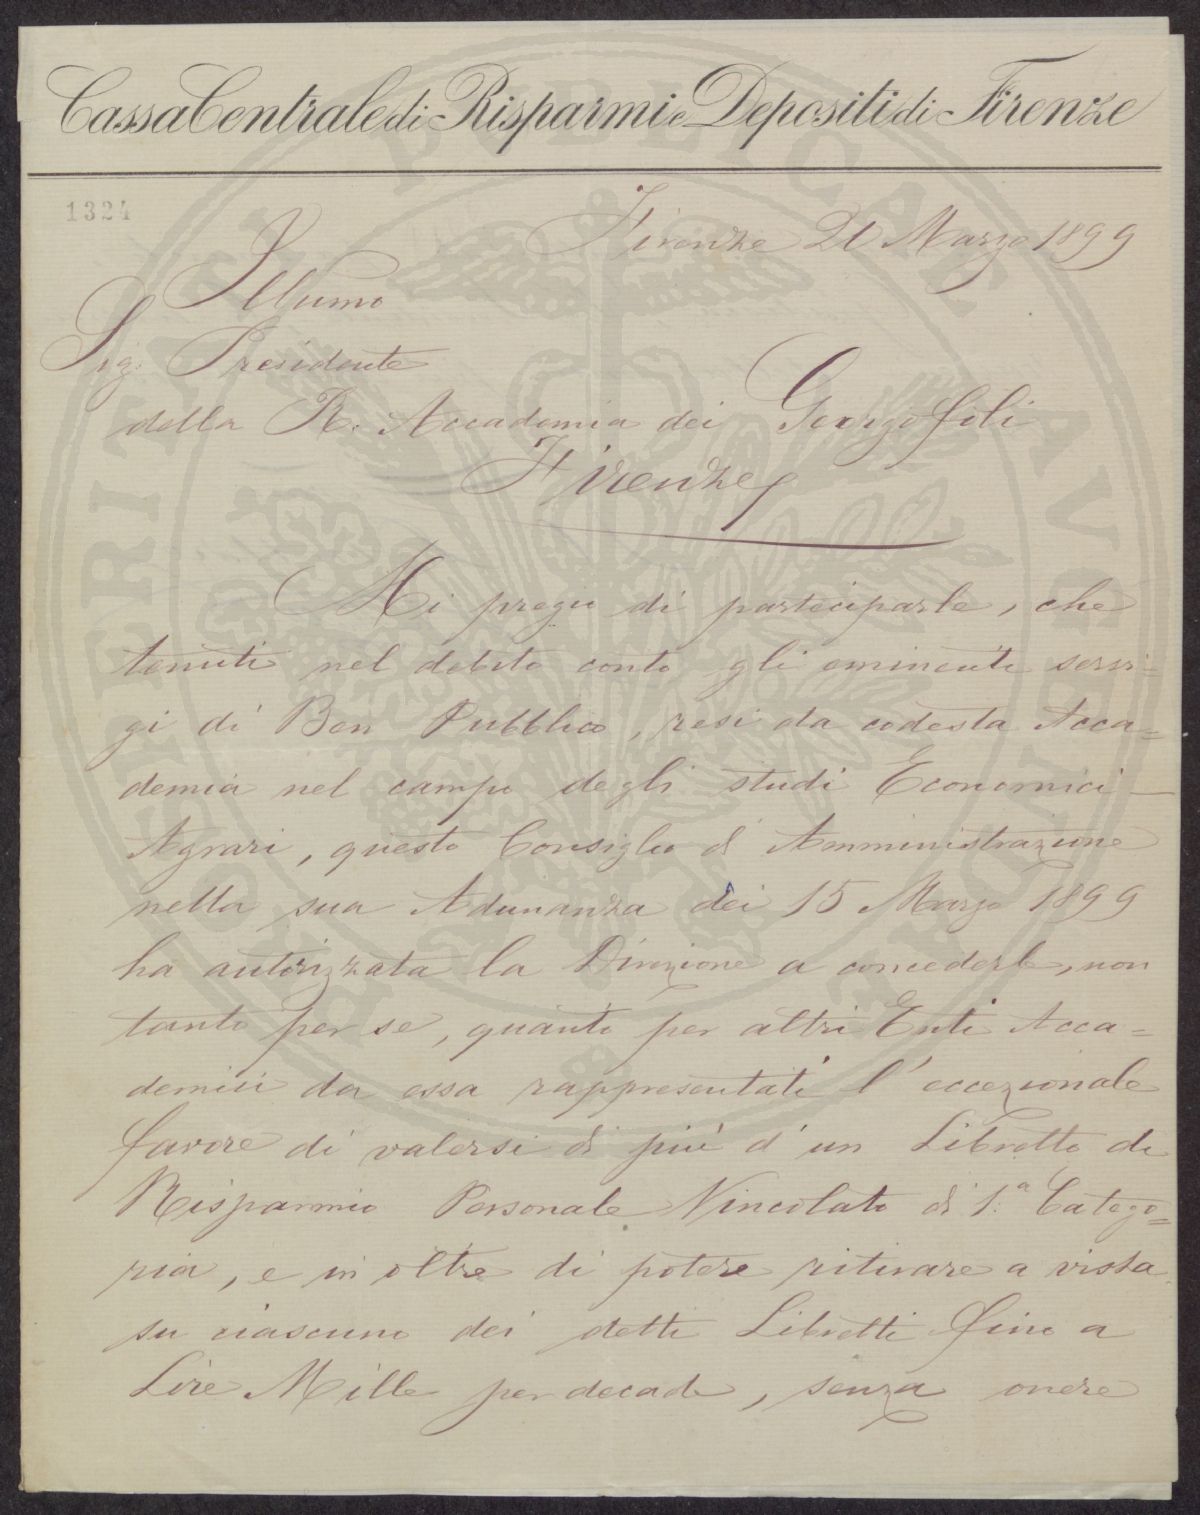 Cassa Centrale di Risparmi e Depositi di Firenze
1324
Firenze 21 Marzo 1899
Illumo
Sig. Presidente
della R. Accademia dei Georgofili
Firenze
Mi pregio di parteciparle, che
tenuti nel debito conto gli eminenti servi-
gi di Ben Pubblico, resi da codesta Acca=
demia nel campo degli studi Economici-
Agrari, questo Consiglio d'Amministrazione
nella sua Adunanza dei 15 Marzo 1899
ha autorizzata la Direzione a concederle, non
tanto per se, quanto per altri Enti Acca=
demici da essa rappresentati l'eccezionale
favore di valersi di più d'un Libretto di
Risparmio Personale Vincolato di 1.ª Catego=
ria, e in oltre di potere ritirare a vista
su ciascuno dei detti Libretti fino a
Lire Mille per decade, senza onere